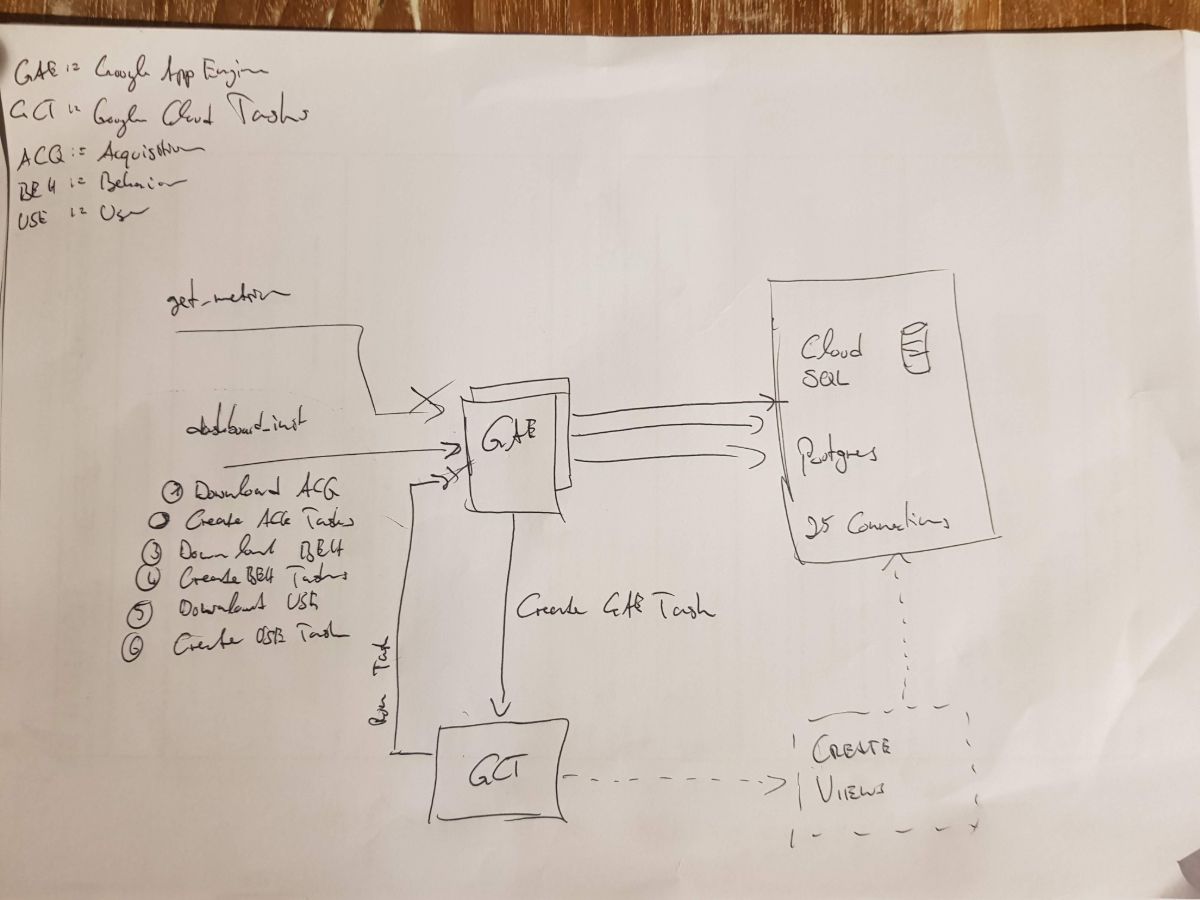 GAE := Google App Engine
GCT := Google Cloud Tasks
ACQ := Acquisition
BEH := Behavior
USE := User
get_metrics
dashboard_init
① Download ACQ
Create ACQ Tasks
③ Download BEH
④ Create BEH Tasks
⑤ Download USE
⑥ Create USE Task
GAE
Cloud
SQL
Postgres
25 Connections
Create GAE Task
Run Task
GCT
CREATE
VIEWS